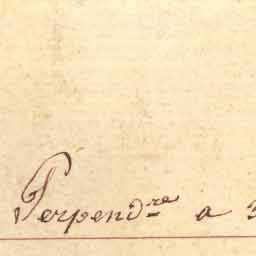 Perpend.re a 3